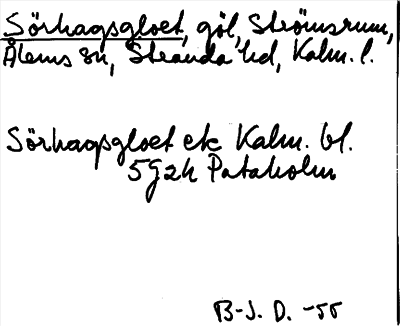 Sörhagsgloet, göl, Strömsrum,
Ålems sn, Stranda hd, Kalm. l.
Sörhagsgloet ek Kalm. bl.
5G2h Pataholm
B-J. D. -55